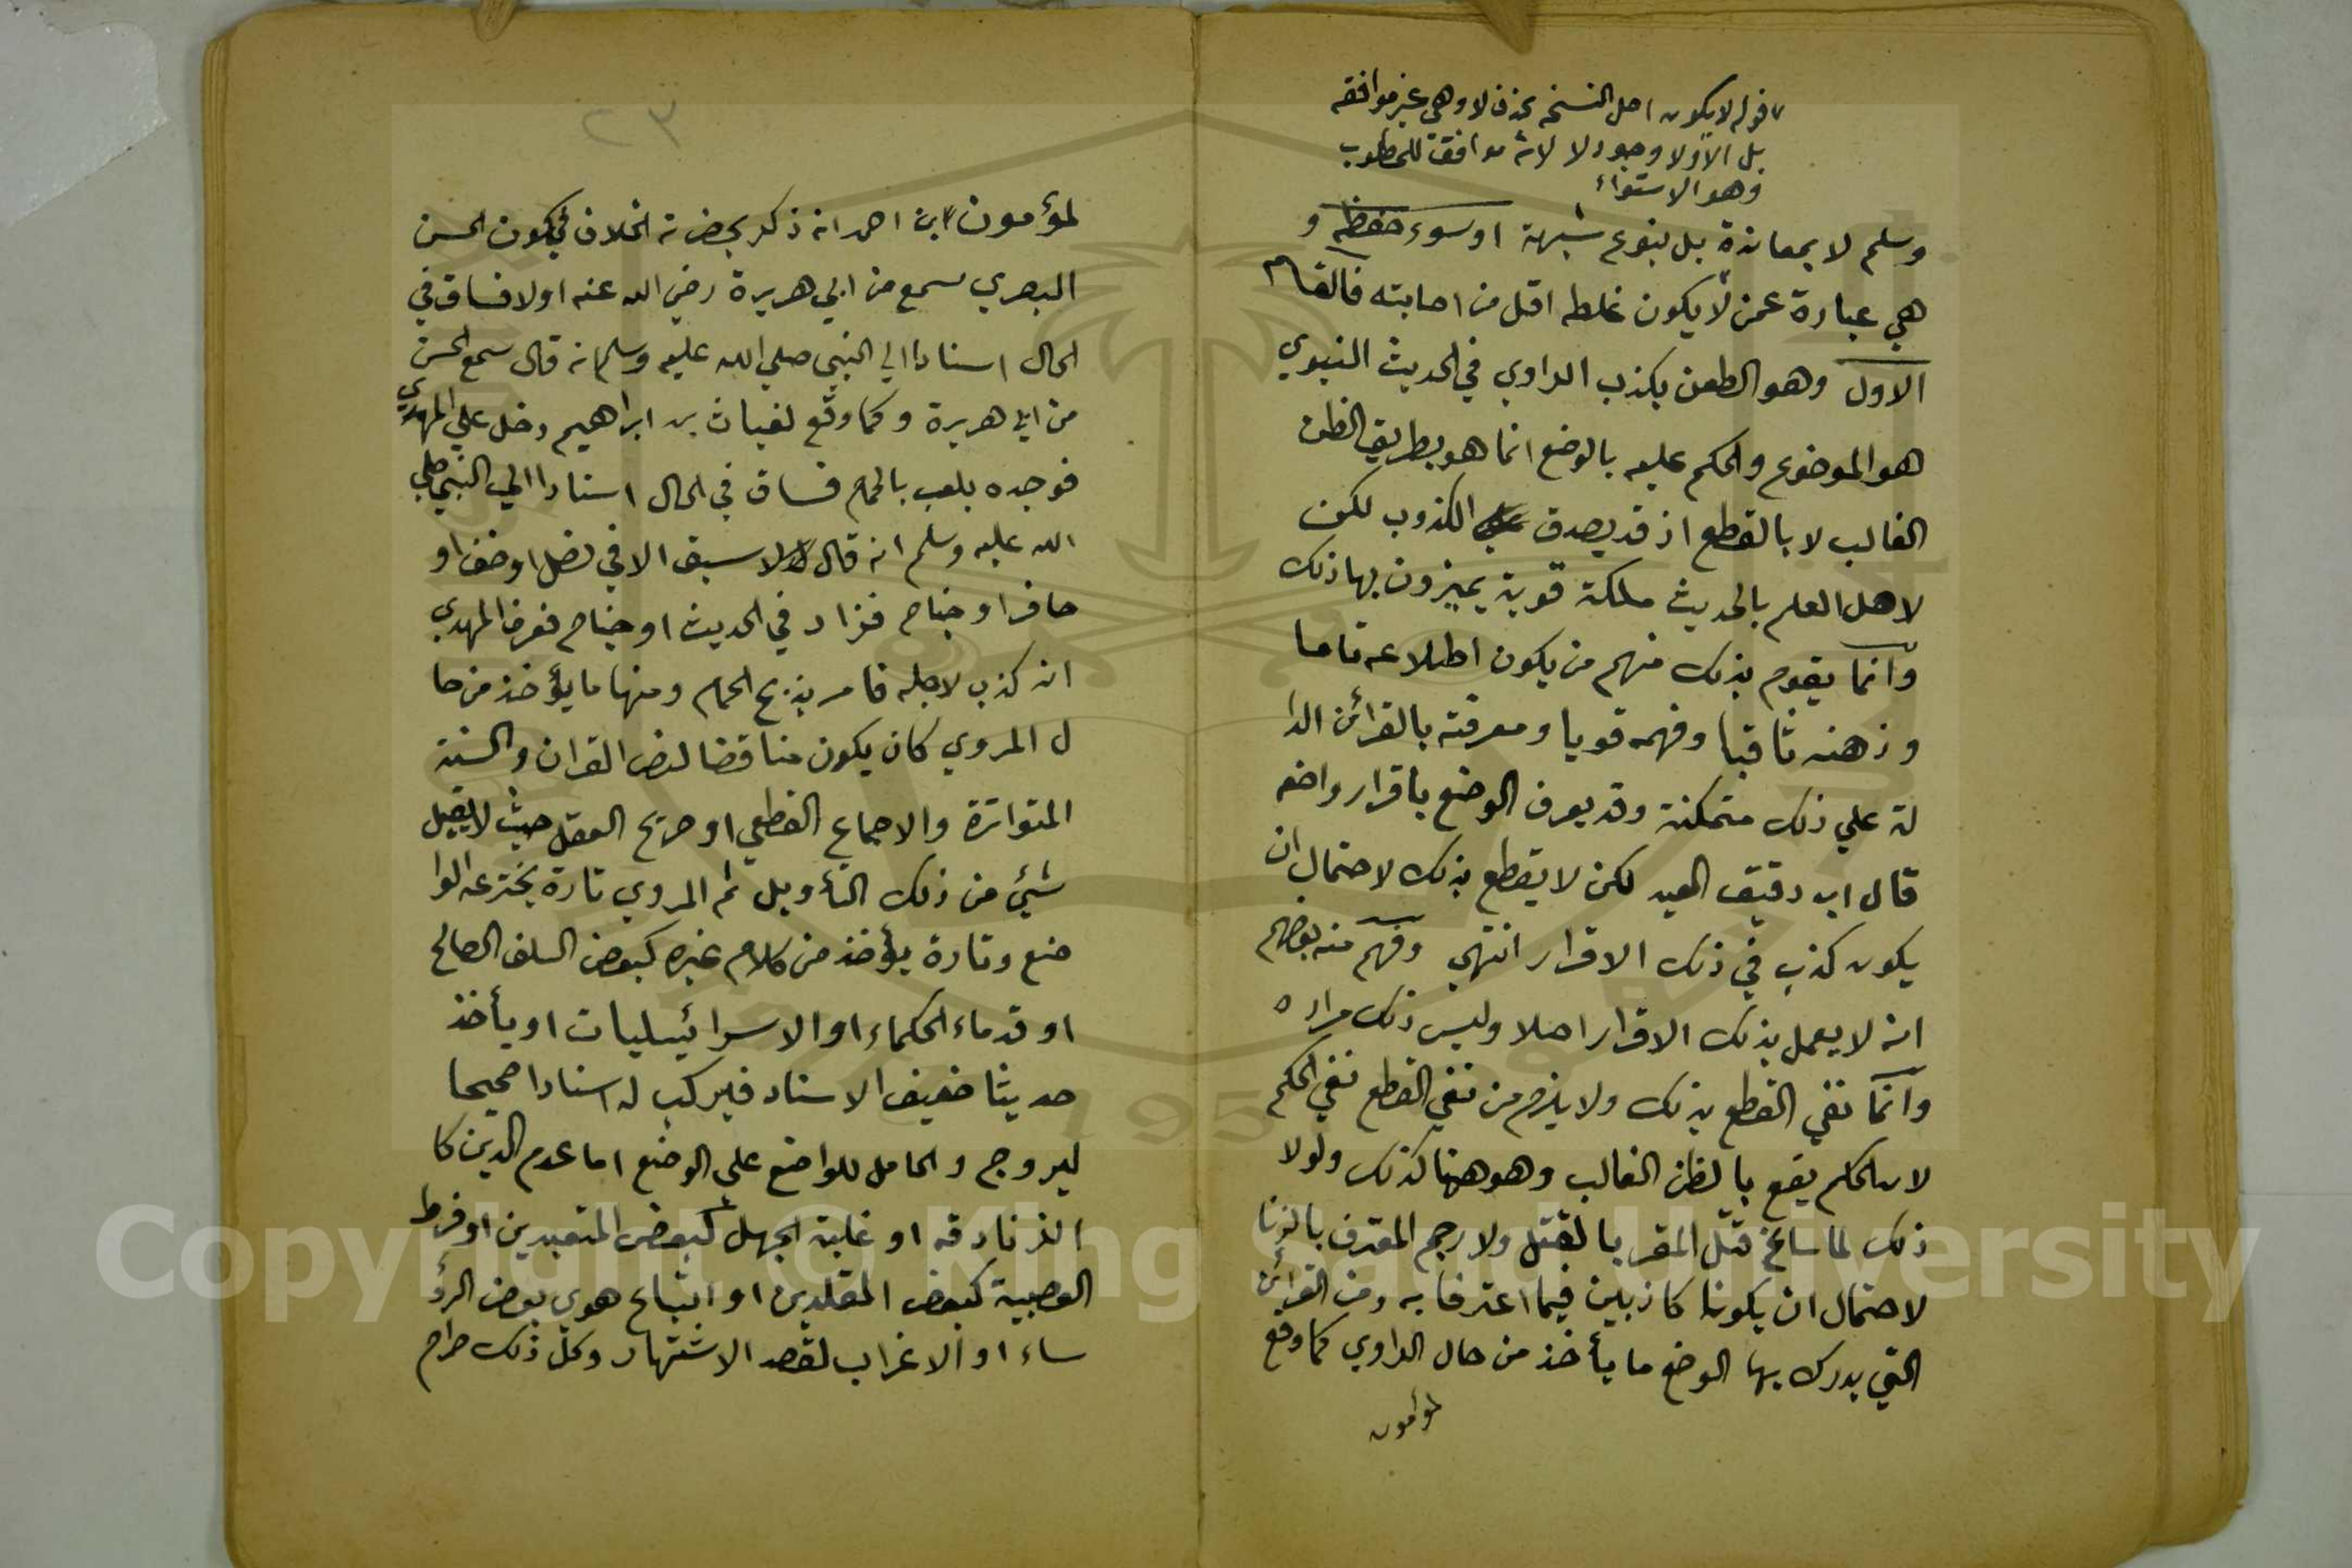 قوله لا يكون اصل النسخه بحذف لا وهي غير موافقه
بل الاولا وجود لا لانه موافقة للمطلوب
وهو الاستواء
وسلم لا بمعاندة بل بنوع شبهة او سوء حفظه و
هي عبارة عمن لا يكون غلطه اقل من اصابته فالقسم
الاول وهو الطعن بكذب الراوي في الحديث النبوي
هو الموضوع والحكم عليه بالوضع انما هو بطريق الظن
الغالب لا بالقطع اذ قد يصدق الكذوب لكن
لاهل العلم بالحديث ملكة قوية يميزون بها ذلك
وانما يقوم بذلك منهم من يكون اطلاعه تاما
و ذهنه ثاقبا وفهمه قويا ومعرفته بالقرائن الدا
لة علي ذلك متمكنة وقد يعرف الوضع باقرار واضعه
قال ابن دقيق العيد لكن لا يقطع بذلك لاحتمال ان
يكون كذب في ذلك الاقرار انتهي وفهم منه بعضهم
انه لا يعمل بذلك الاقرار اصلا وليس ذلك مراده
وانما نفي القطع بذلك ولا يلزم من نفي القطع نفي الحكم
لان الحكم يقع بالظن الغالب وهو ههنا كذلك ولولا
ذلك لما ساغ قتل المقر بالقتل ولا رجم المعترف بالزنا
لاحتمال ان يكونا كاذبين فيما اعترفا به ومن القرائن
التي يدرك بها الوضع ما يأخذ من حال الراوي كما وقع
لمؤمون
٢٣
لمؤمون ابن احمد انه ذكر بحضرته الخلاف في كون الحسن
البصري سمع من ابي هريرة رضي الله عنه اولا فساق في
الحال اسنادا الي النبي صلي الله عليه وسلم انه قال سمع الحسن
من ابي هريرة و كما وقع لغياث بن ابراهيم دخل علي المهدي
فوجده يلعب بالحمام فساق في الحال اسنادا الي النبي صلي
الله عليه وسلم انه قال لا سبق الا في نصل او خف او
حافر او جناح فزاد في الحديث او جناح فعرف المهدي
انه كذب لاجله فامر بذبح الحمام ومنها ما يؤخذ من حا
ل المروي كان يكون مناقضا لنص القران والسنة
المتواترة والاجماع القطعي او صريح العقل حيث لا يقبل
شيئ من ذلك التأويل ثم المروي تارة يخترعه الوا
ضع وتارة يؤخذ من كلام غيره كبعض السلف الصالح
او قدماء الحكماء او الاسرائيليات او يأخذ
حديثا ضعيف الاسناد فيركب له اسنادا صحيحا
ليروج والحامل للواضع علي الوضع اما عدم الدين كا
الزنادقه او غلبة الجهل كبعض المتعبدين او فرط
العصبية كبعض المقلدين او اتباع هوي بعض الرؤ
ساء او الاغراب لقصد الاشتهار وكل ذلك حرام